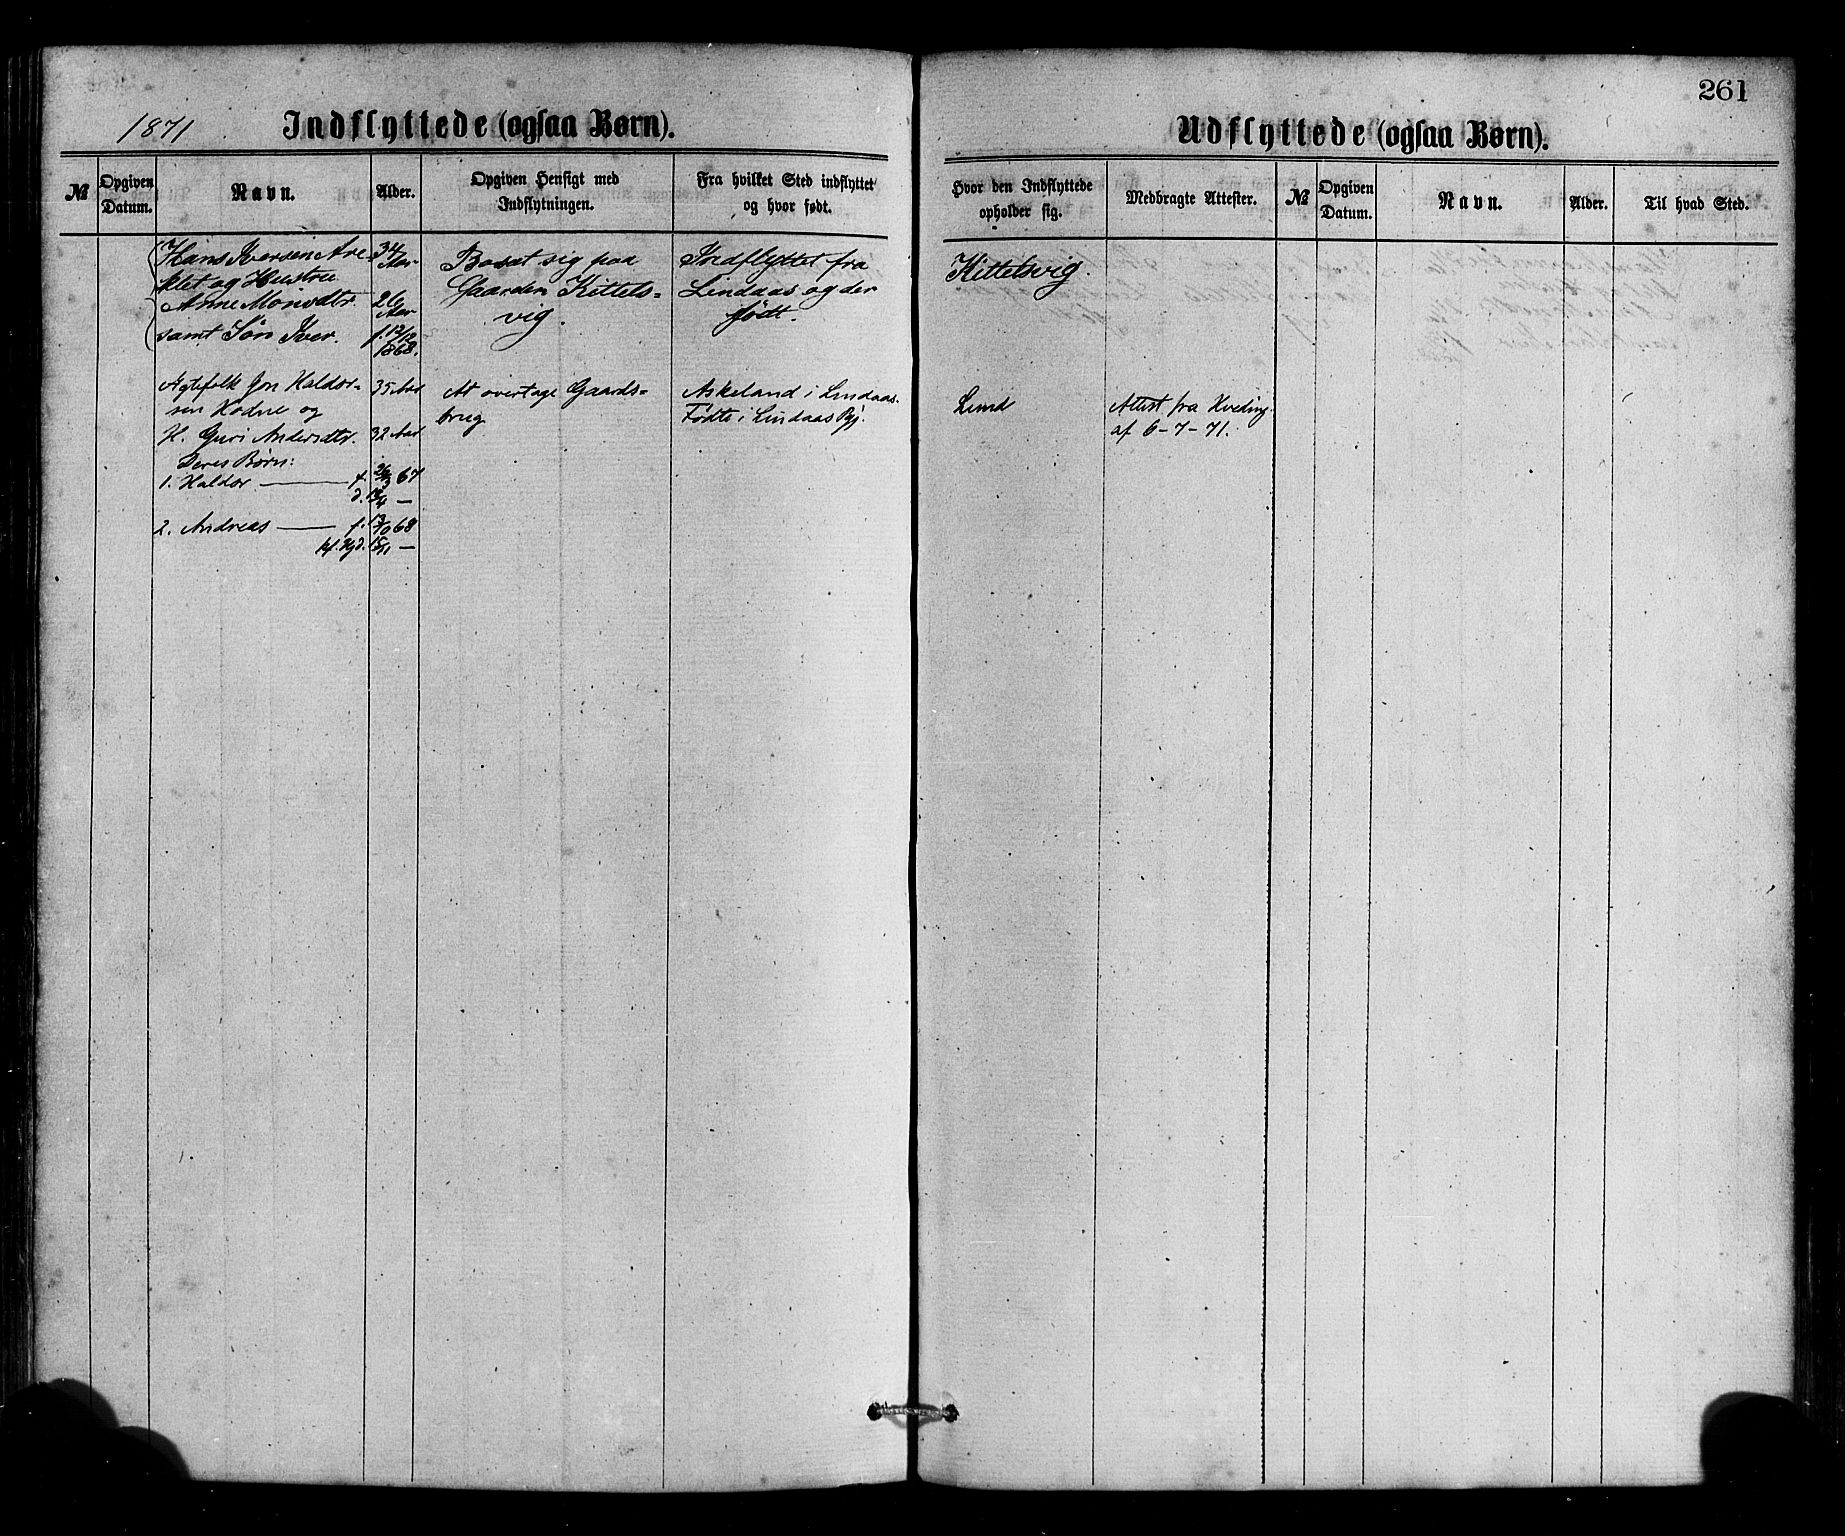 261
1871 Indflyttede (ogsaa Børn).
Udflyttede (ogsaa Børn).
№ Opgiven Datum. Navn. Alder. Opgiven Hensigt med Indflytningen. Fra hvilket Sted indflyttet og hvor født.
Hvor den Indflyttede opholder sig. Medbragte Attester. № Opgiven Datum. Navn. Alder. Til hvad Sted.
Hans Iversen Are- 34 Aar Bosat sig paa Indflyttet fra Kittelsvig.
klet og Hustru Gaarden Kittels- Lindaas og der
Anne Monsdtr. 26 Aar vig. født.
samt Søn Iver. f. 12/12 1868.
Ægtefolk Jon Haldor- 35 Aar At overtage Gaards- Askeland i Lindaas. Lund Attest fra Hveding
sen Hodne og brug Fødte i Lindaas Pgj. af 6-7-71.
H. Guri Andersdtr. 32 Aar
Deres Børn:
1. Haldor — f. 26/3 67
d. 19/4 —
2. Andreas — f. 13/10 68
d. 15/11 —